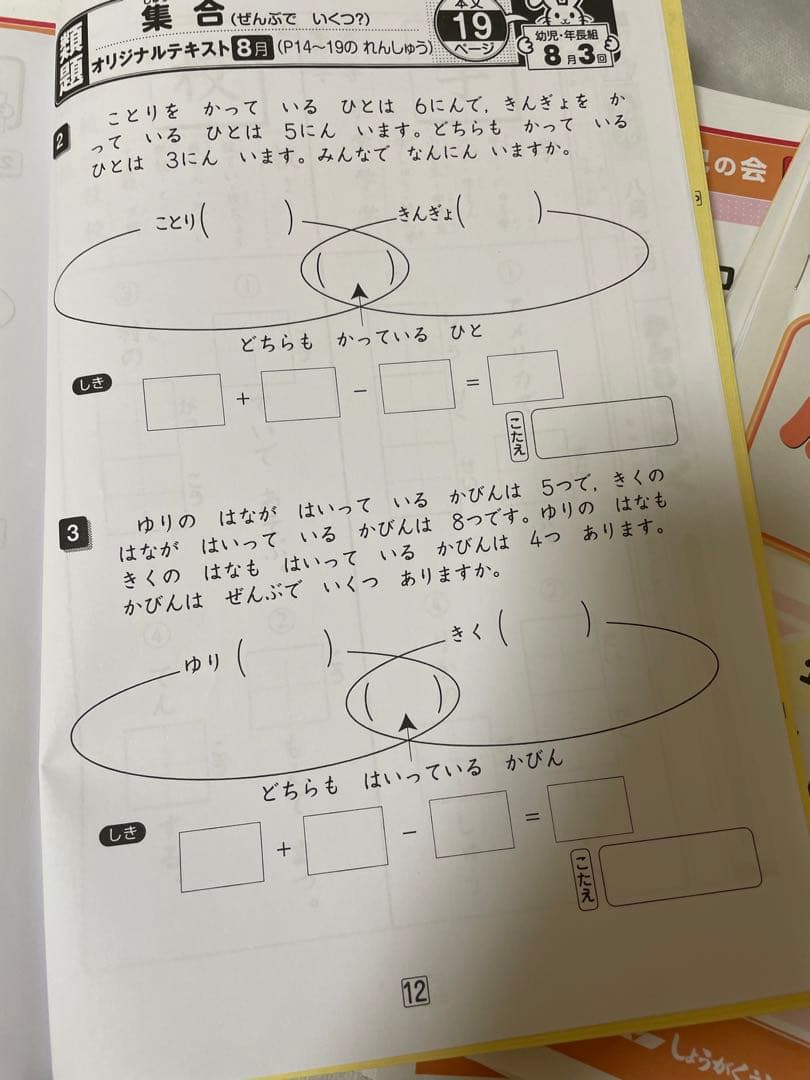 集合(ぜんぶで いくつ?)
類題
オリジナルテキスト 8月 (P14～19の れんしゅう)
本文
19
ページ
幼児・年長組
8月3回
2
ことりを かって いる ひとは 6にんで,きんぎょを か
って いる ひとは 5にん います。どちらも かって いる
ひとは 3にん います。みんなで なんにん いますか。
ことり( )
きんぎょ( )
( )
どちらも かっている ひと
しき
+ - =
こたえ
3
ゆりの はなが はいって いる かびんは 5つで,きくの
はなが はいって いる かびんは 8つです。ゆりの はなも
きくの はなも はいって いる かびんは 4つ あります。
かびんは ぜんぶで いくつ ありますか。
ゆり( )
きく( )
( )
どちらも はいっている かびん
しき
+ - =
こたえ
12
の会
しょうがくう